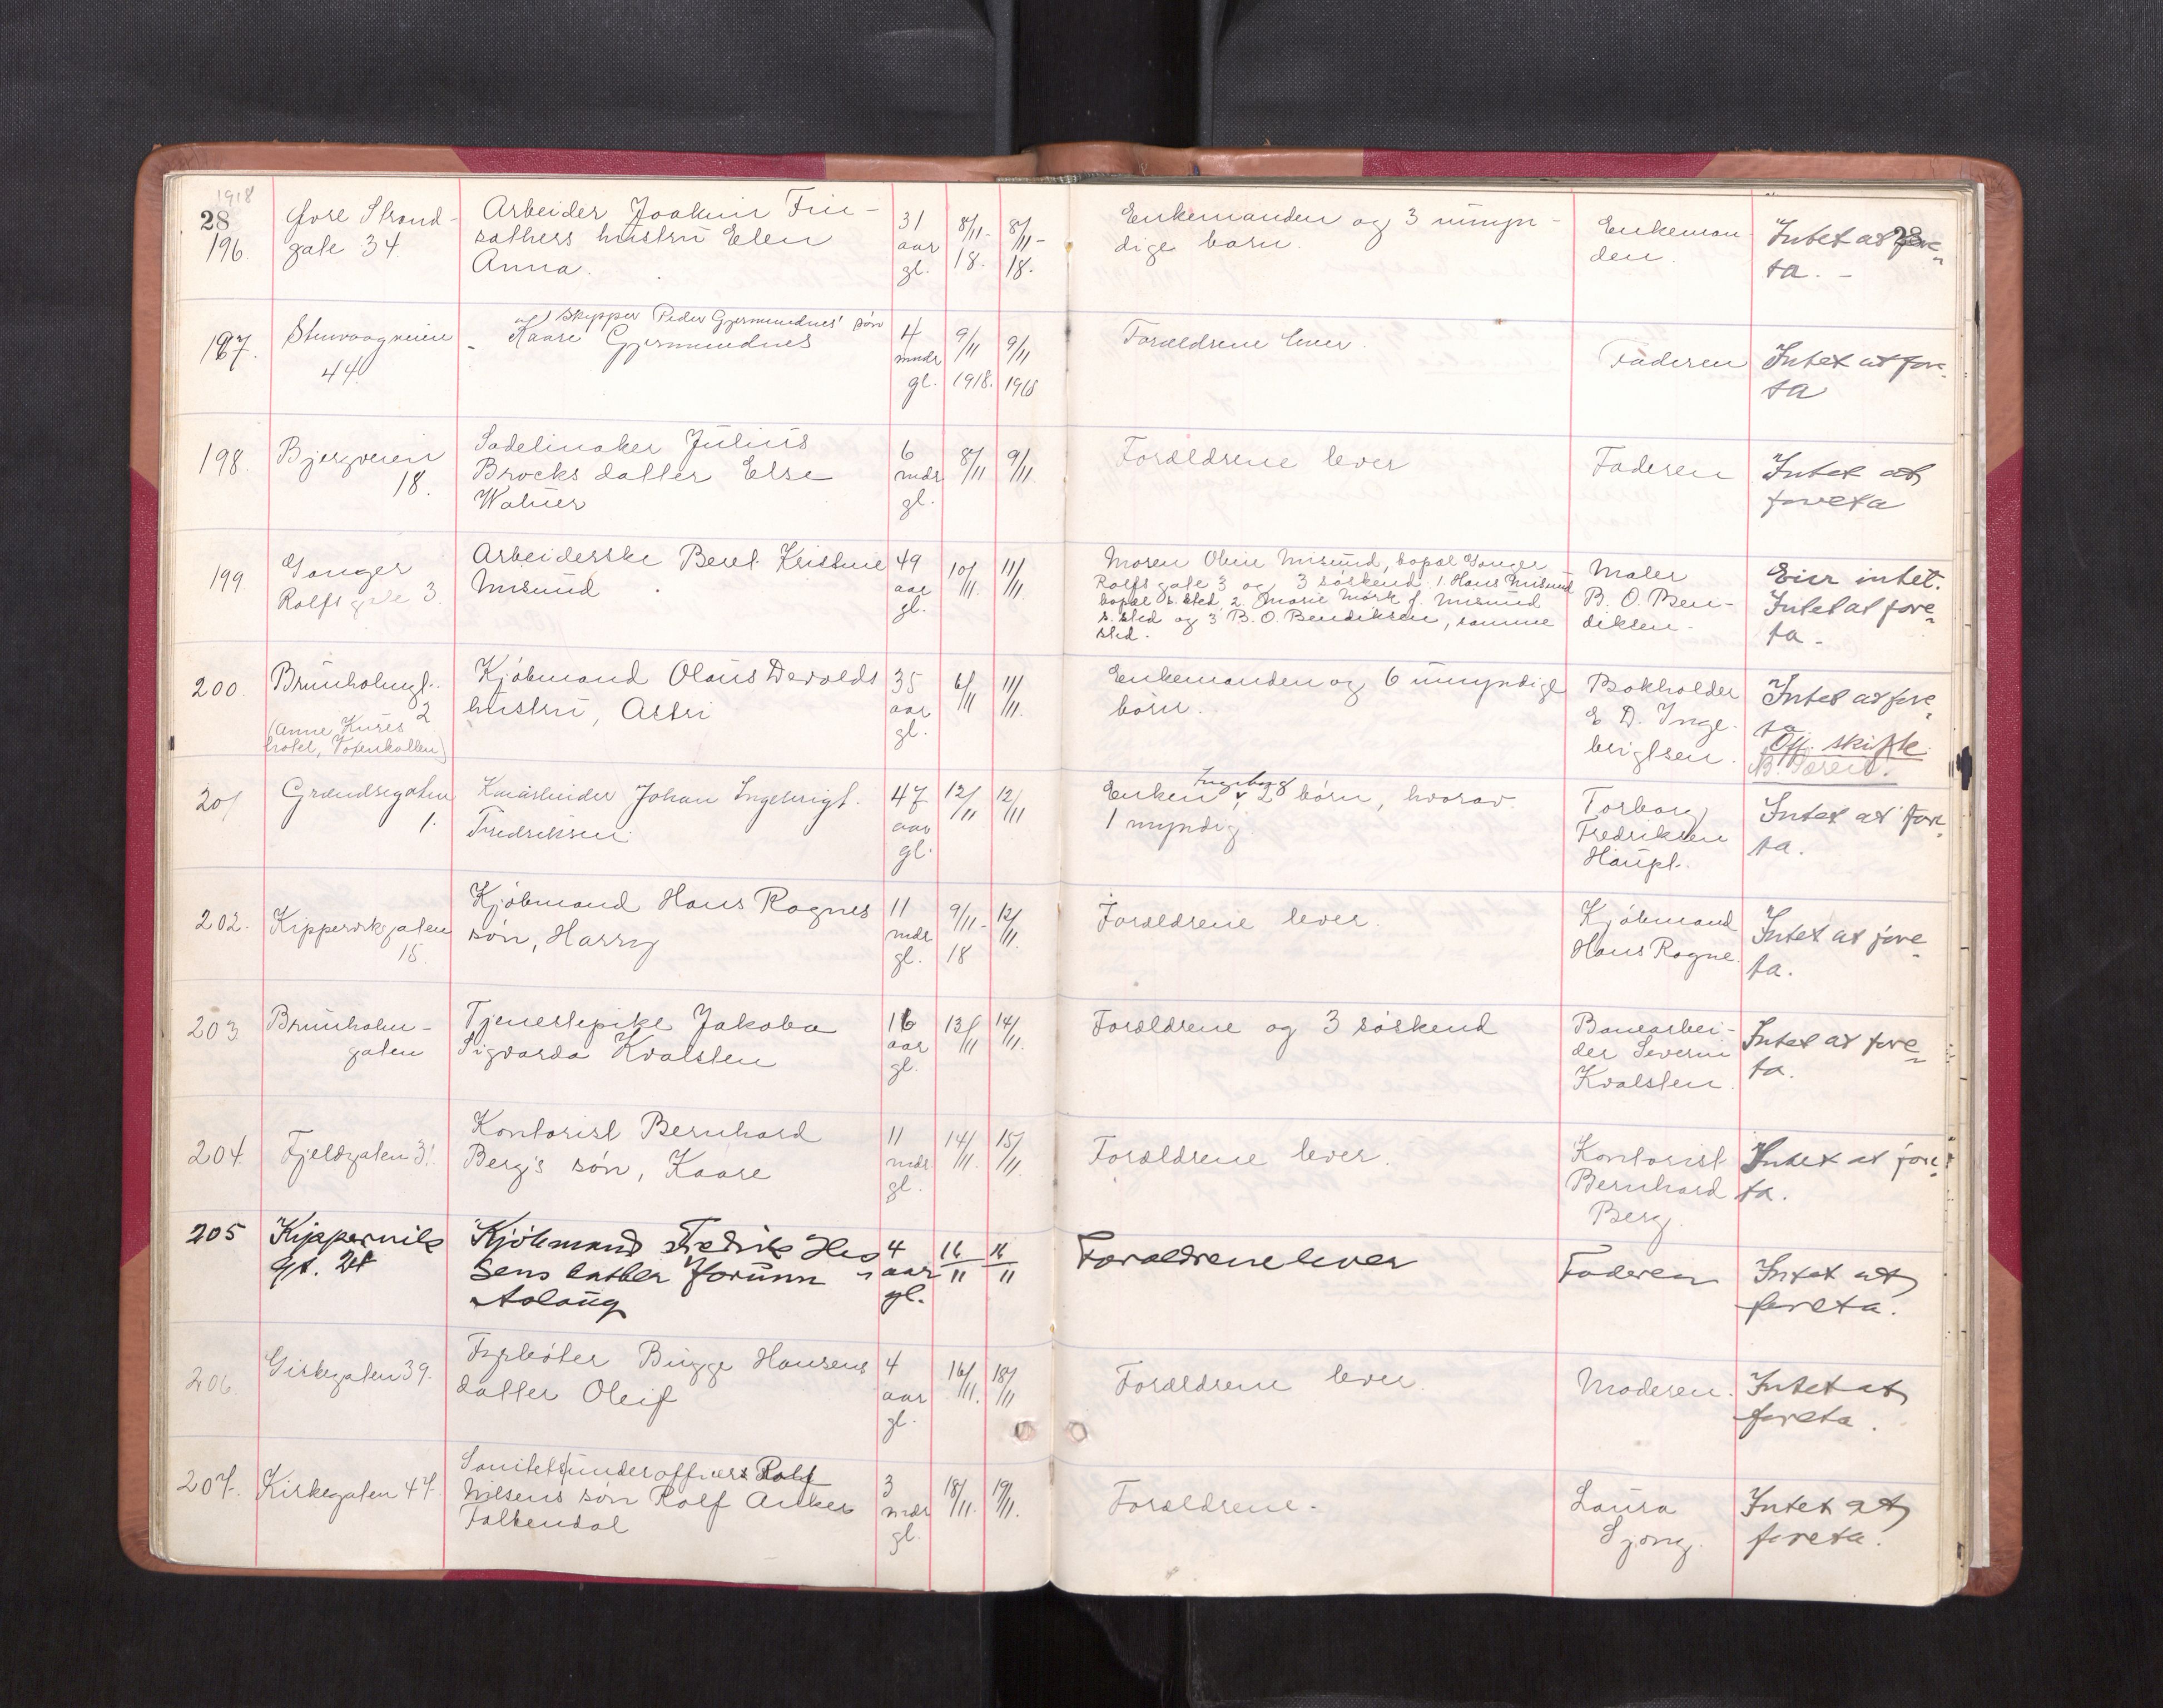 1918
28
28
196. Øvre Strand-
gate 34.
Arbeider Joakim
hustru Elen
Anna.
31
aar
gl.
8/11-
18.
8/11-
18.
Enkemanden og 3 umyn-
dige barn.
Enkeman
den.
Intet at fore-
ta. -
197.
44.
Skipper Peder Gjermundnes' søn
Kaare Gjermundnes
4
mndr
gl.
9/11
1918.
9/11
1918
Forældrene lever.
Faderen
Intet at fore-
ta
198. Bjergveien
18.
Sadelmaker Julius
Brocks datter Else
6
mdr
gl.
8/11
9/11.
Forældrene lever
Faderen
Intet at
foreta
199 Ganger
Rolfs gate 3.
Arbeiderske Berel. Kristine
Misund
49
aar
gl.
10/11.
11/11.
Moren Oline Misund, bopæl Ganger
Rolfs gate 3 og 3 søskend 1. Hans Misund
bopæl s. sted, 2. Marie Mørk f. Misund
s. sted og 3 B. O. Bendiksen, samme
sted.
Maler
B. O. Ben-
diksen.
Eier intet.
Intet at fore-
ta.
200. Brunholmgt.
2
(Anne Kures
hotel,
Kjøbmand Olaus Devolds
hustru, Astri
35
aar
gl.
6/11
11/11.
Enkemanden og 6 umyndige
børn.
Bokholder
E. D. Inge-
brigtsen.
Intet at fore-
ta
Off. skifte.
201 Grændsegaten
1.
Johan Ingebrigt.
Fredriksen.
47
aar
gl.
12/11
12/11
Enken Ingeborg, 2 børn, hvorav
1 myndig.
Torborg
Fredriksen
Haupt.
Intet at fore-
ta.
202. Kippervikgaten
15.
Kjøbmand Hans Rognes
søn, Harry
11
mdr
gl.
9/11-
18
12/11.
Forældrene lever.
Kjøbmand
Hans Rogne.
Intet at fore-
ta.
203 Brunholm-
gaten
Tjenestepike Jakoba
Sigvarda Kvalsten
16
aar
gl.
13/11
14/11.
Forældrene og 3 søskend
Banearbei-
der Severin
Kvalsten.
Intet at fore-
ta.
204. Fjeldgaten 31.
Kontorist Bernhard
Berg's søn, Kaare
11
mdr.
gl.
14/11.
15/11.
Forældrene lever.
Kontorist
Bernhard
Berg.
Intet at fore-
ta.
205 Kippervik
gt.
Kjøbmand Fredrik
sens datter Jorunn
Aslaug
4
aar
gl.
16/11
16/11
Forældrene lever
Faderen
Intet at
foreta.
206. Girkegaten 39.
Fyrbøter Bugge Hansens
datter Oleif
4
aar
gl.
16/11.
18/11
Forældrene lever.
Moderen.
Intet at
foreta.
207. Kirkegaten 47.
Sanitetsunderofficers Rolf
Nilsens søn Rolf Anker
Falkendal
3
mdr
gl.
18/11.
19/11.
Forældrene.
Laura
Sjong.
Intet at
foreta.